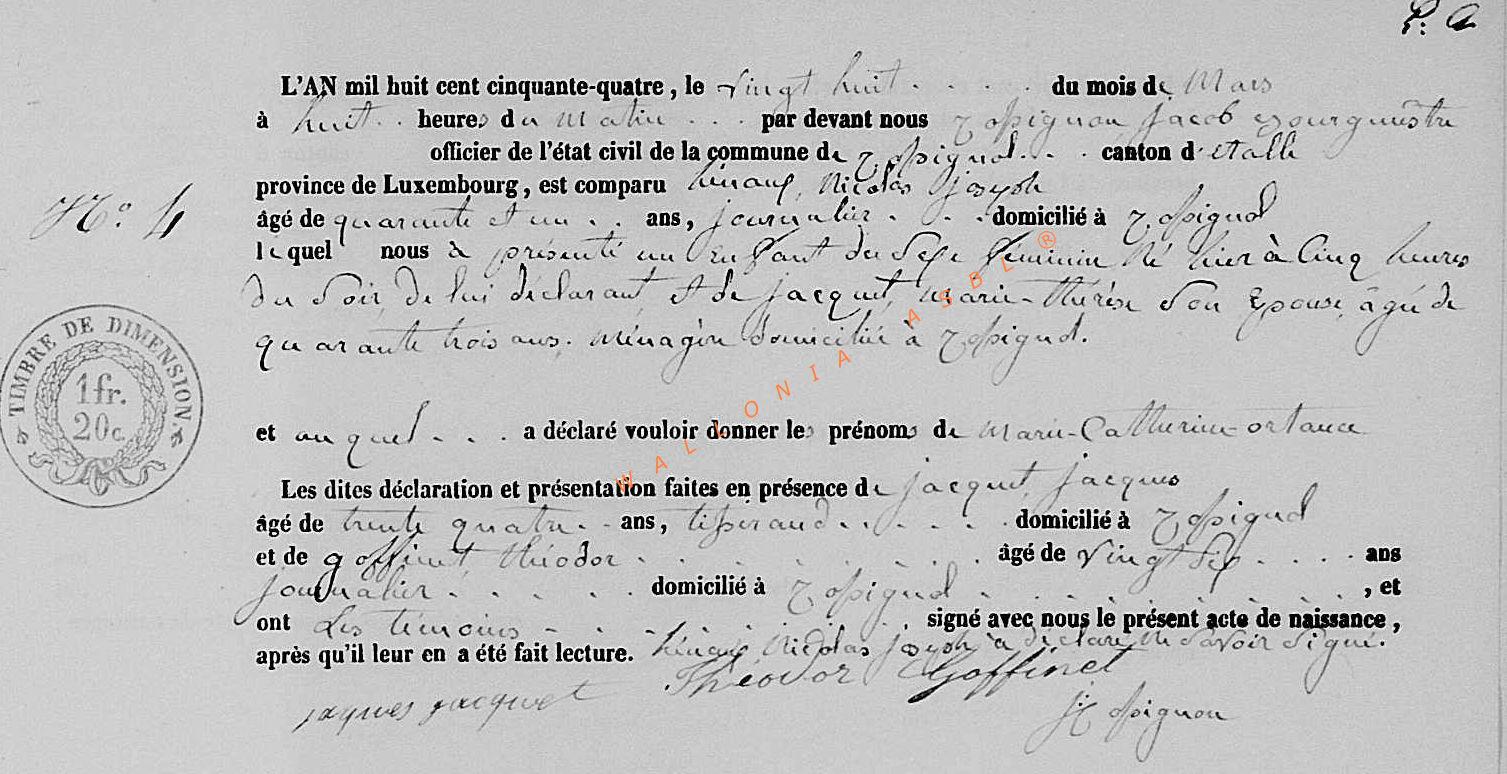 P. A
L'AN mil huit cent cinquante-quatre, le vingt huit . . . . du mois de Mars
à huit . . heures du Matin . . . par devant nous Rossignon Jacob Bourgmestre
officier de l'état civil de la commune de Rossignol . . . canton d'Etalle
province de Luxembourg, est comparu hénaux, Nicolas joseph
N.° 4
âgé de quarante et un . . ans, journalier . . . domicilié à Rossignol
lequel nous à présenté un Enfant du Sexe féminin Né hier à Cinq heures
du Soir, de lui déclarant et de jacquet, Marie-thérèse Son Epouse, âgée de
quarante trois ans. Ménagère domiciliée à Rossignol.
TIMBRE DE DIMENSION.
1 fr.
20 c.
et auquel . . . a déclaré vouloir donner les prénoms de Marie-Catherine-ortance
Les dites déclaration et présentation faites en présence de jacquet, jacques
âgé de trente quatre . . ans, tisserand . . . . . domicilié à Rossignol
et de goffinet, théodor . . . . . . . . âgé de vingt six . . . . ans
journalier . . . . . domicilié à Rossignol . . . . . . . . , et
ont Les témoins . . . . . . . . signé avec nous le présent acte de naissance,
après qu'il leur en a été fait lecture. hénaux, Nicolas joseph à déclaré Ne Savoir Signé.
jaques jacquet Théodor Goffinet
J: Rossignon
WALLONIA ASBL ®